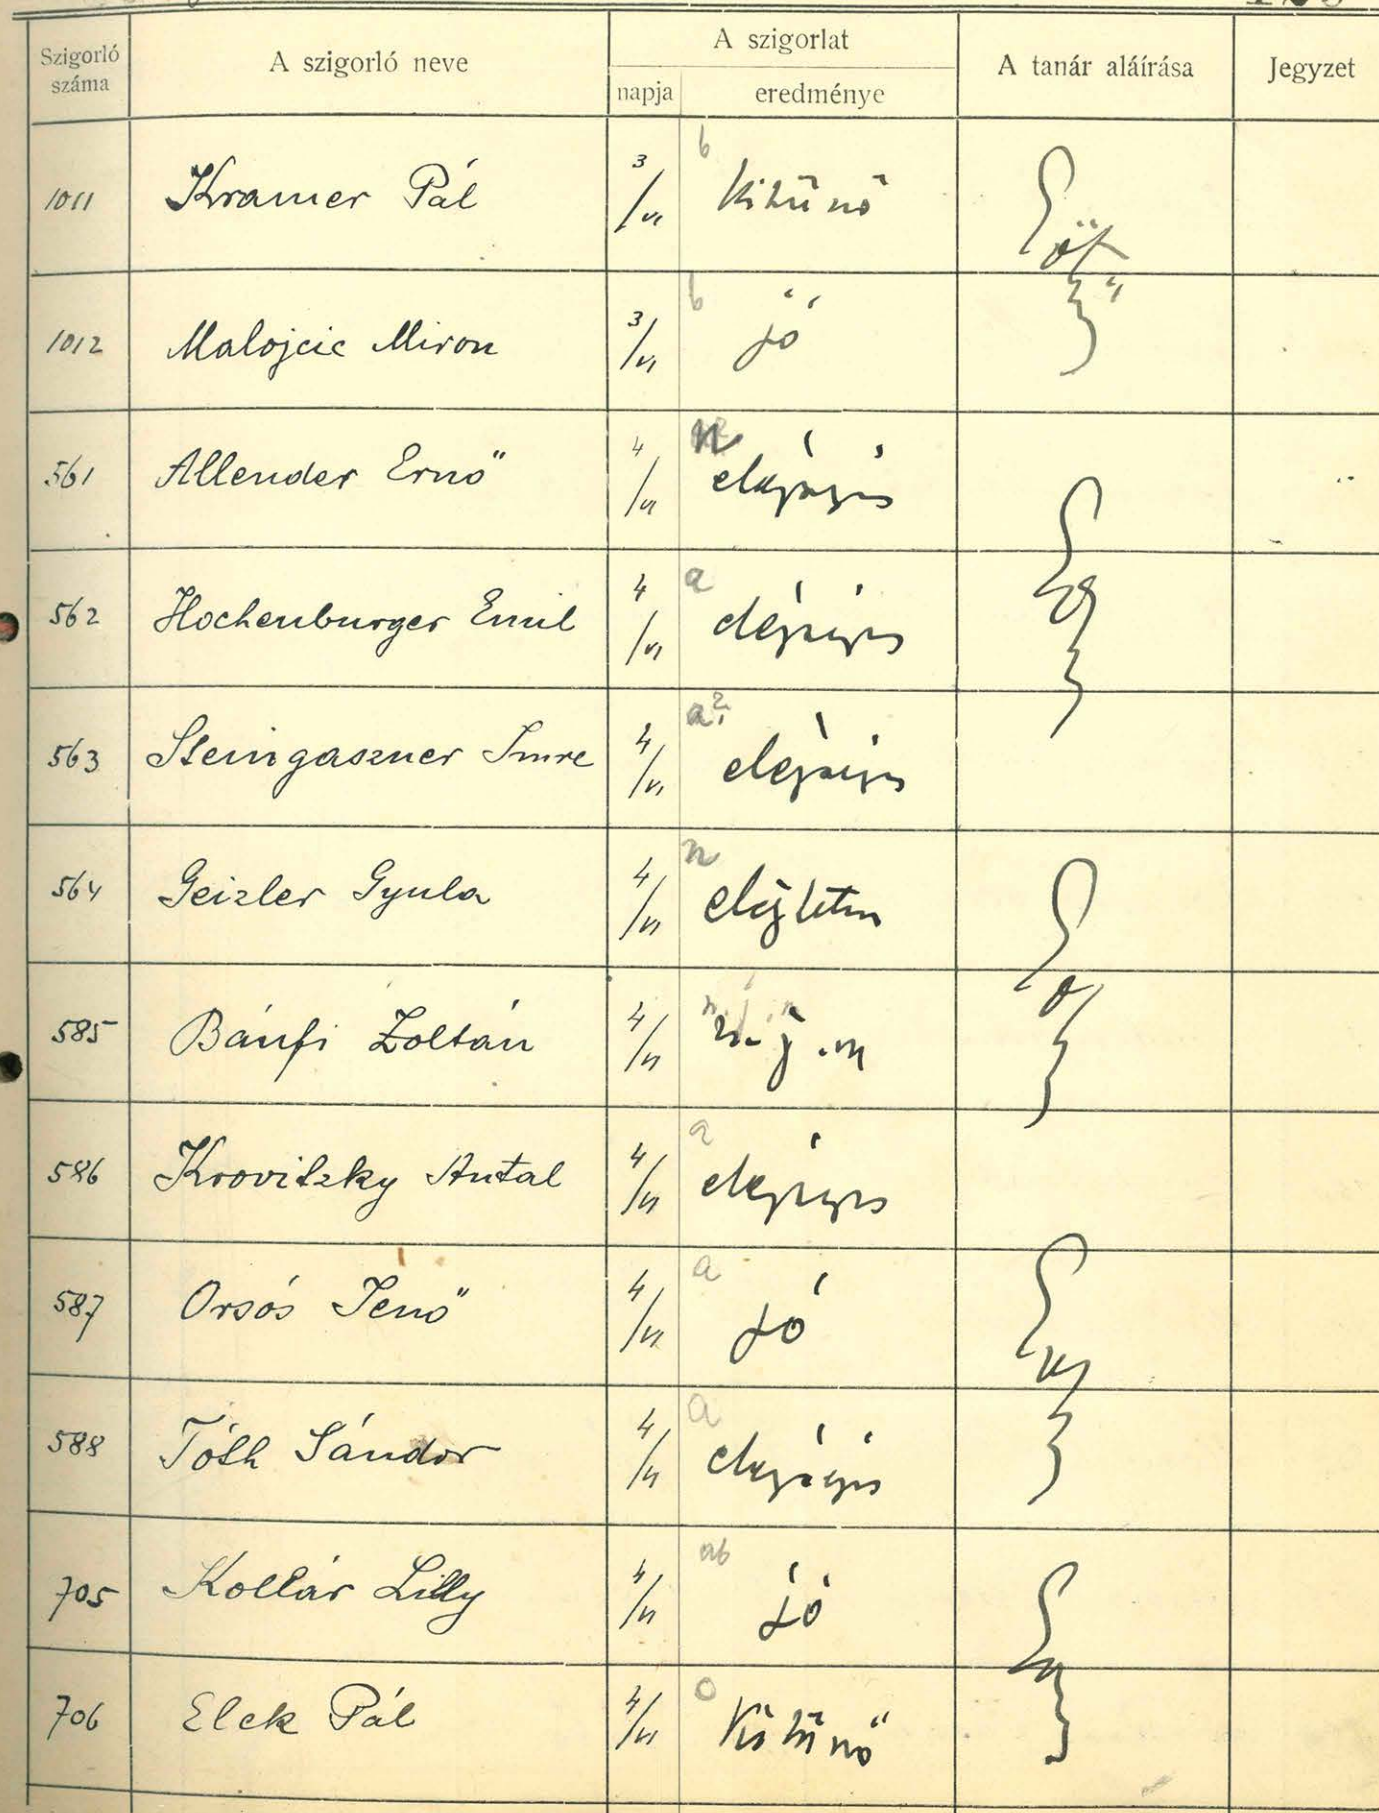 Szigorló száma A szigorló neve A szigorlat napja eredménye A tanár aláírása Jegyzet
1011 Kramer Pál 3/VI b kitünő
1012 Malojcic Miron 3/VI b jó
561 Allender Ernő 4/VI n elégséges
562 Hochenburger Emil 4/VI a elégséges
563 Steingaszner Imre 4/VI a? elégséges
564 Geizler Gyula 4/VI n elégtelen
585 Bánfi Zoltán 4/VI
586 Krovitzky Antal 4/VI a elégséges
587 Orsós Jenő 4/VI a jó
588 Tóth Sándor 4/VI a elégséges
705 Kollár Lilly 4/VI ab jó
706 Elek Pál 4/VI o Kitünő